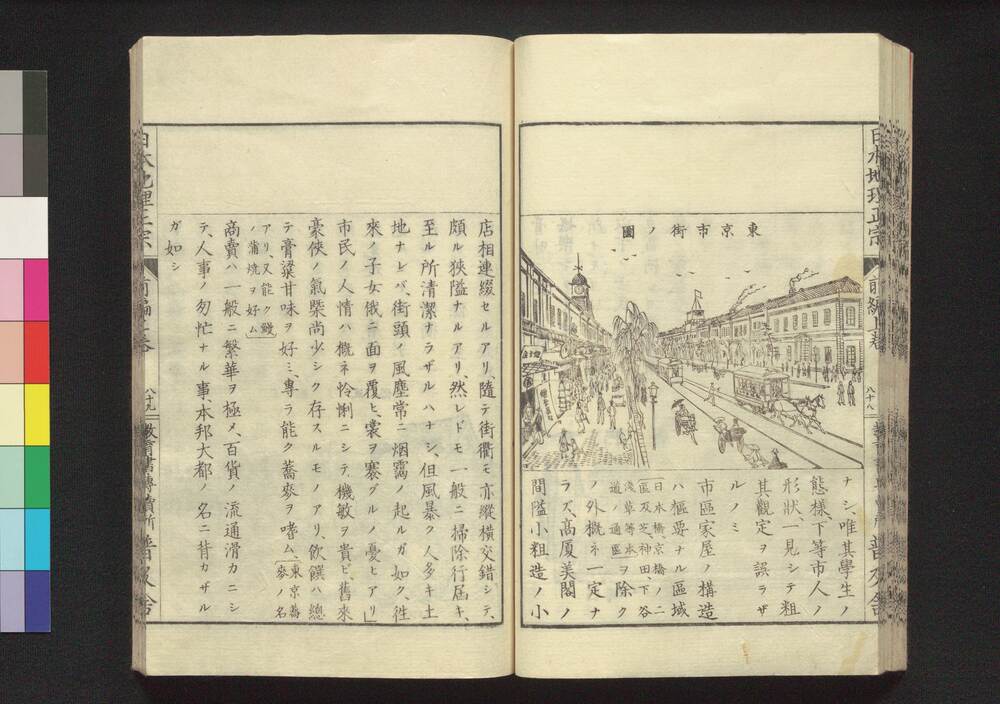 日本地理正宗
前編上巻
八十八
普及舍
東京市街ノ圖
ナシ、唯其學生ノ
態樣、下等市人ノ
形狀、一見シテ粗
其觀定ヲ誤ラザ
ルノミ
市區家屋ノ構造
ハ樞要ナル區域
日本橋、京橋ノ二
區及芝、神田、下谷
淺草等本
道ノ通區ヲ除ク
ノ外概ネ一定ナ
ラズ、高厦美閣ノ
間隘小粗造ノ小
店相連綴セルアリ、隨テ街衢モ亦縱橫交錯、シテ、
頗ル狹隘ナルアリ、然レドモ一般ニ掃除行屆キ、
至ル所清潔ナラザルハナシ、但風暴ク人多キ土
地ナレバ、街頭ノ風塵常ニ烟靄ノ起ルガ如ク、徃
來ノ子女俄ニ面ヲ覆ヒ、裳ヲ褰グルノ憂ヒアリ」
市民ノ人情ハ概ネ怜悧ニシテ、機敏ヲ貴ビ、舊來
豪俠ノ氣槩尚少シク存スルモノアリ、飲饌ハ總
テ膏粱甘味ヲ好ミ、專ラ能ク蕎麥ヲ嗜ム、
東京蕎
麥ノ名
アリ、又能ク鰻
ノ蒲燒ヲ好ム
商賣ハ一般ニ繁華ヲ極メ、百貨ノ流通滑カニシ
テ、人事ノ匆忙ナル事、本邦大都ノ名ニ背カザル
ガ如シ
日本地理正宗
前編上巻
八十九
教育書專賣所
普及舍